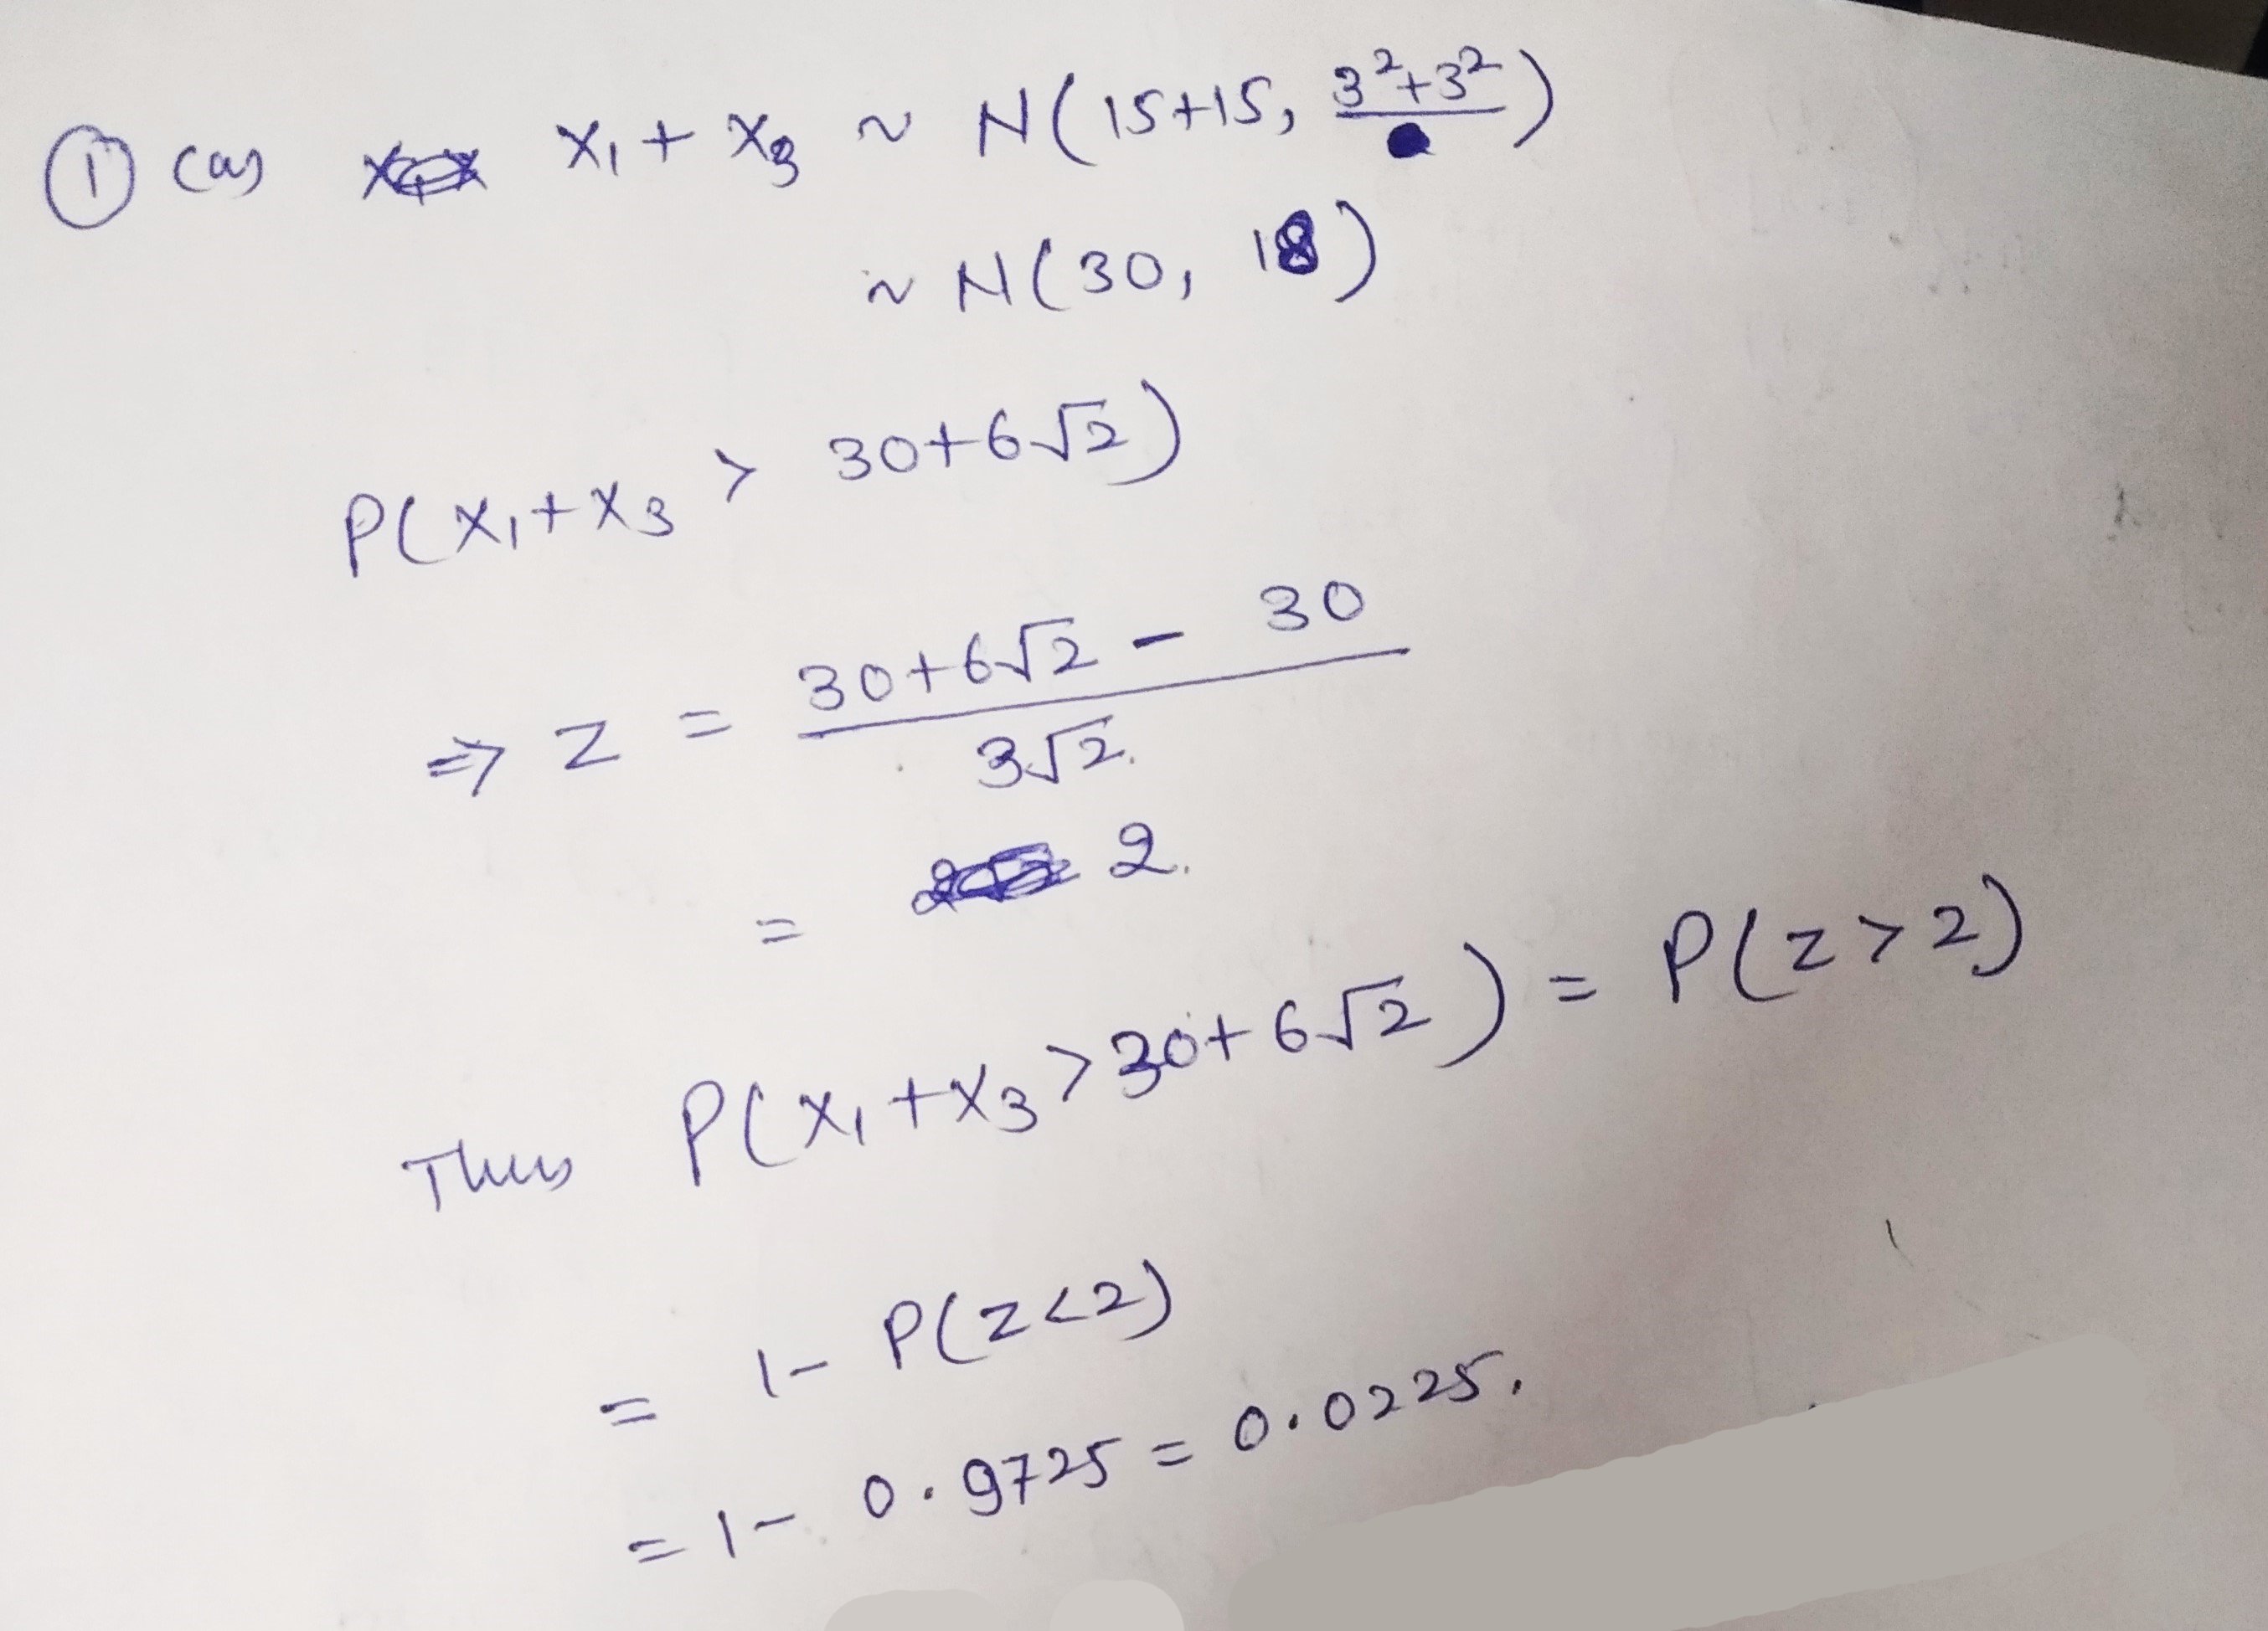 ① (a) X₁ + X₃ ~ N(15+15, 3²+3²)
~ N(30, 18)
P(X₁+X₃ > 30+6√2)
⇒ Z = (30+6√2 - 30) / 3√2.
= 2.
Thus P(X₁+X₃ > 30+6√2) = P(Z>2)
= 1- P(Z<2)
= 1- 0.9725 = 0.0225.